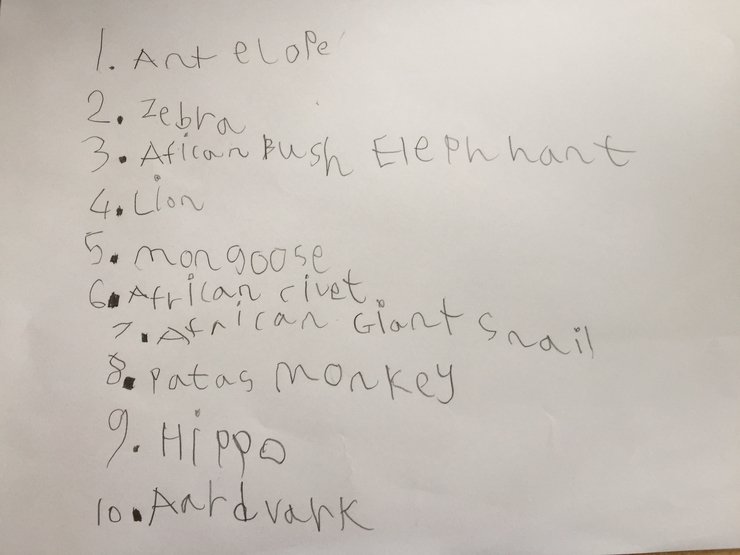 1. Antelope
2. Zebra
3. Afican Bush Elephhant
4. Lion
5. mongoose
6. African civet
7. African Giant Snail
8. patas monkey
9. Hippo
10. Aardvark